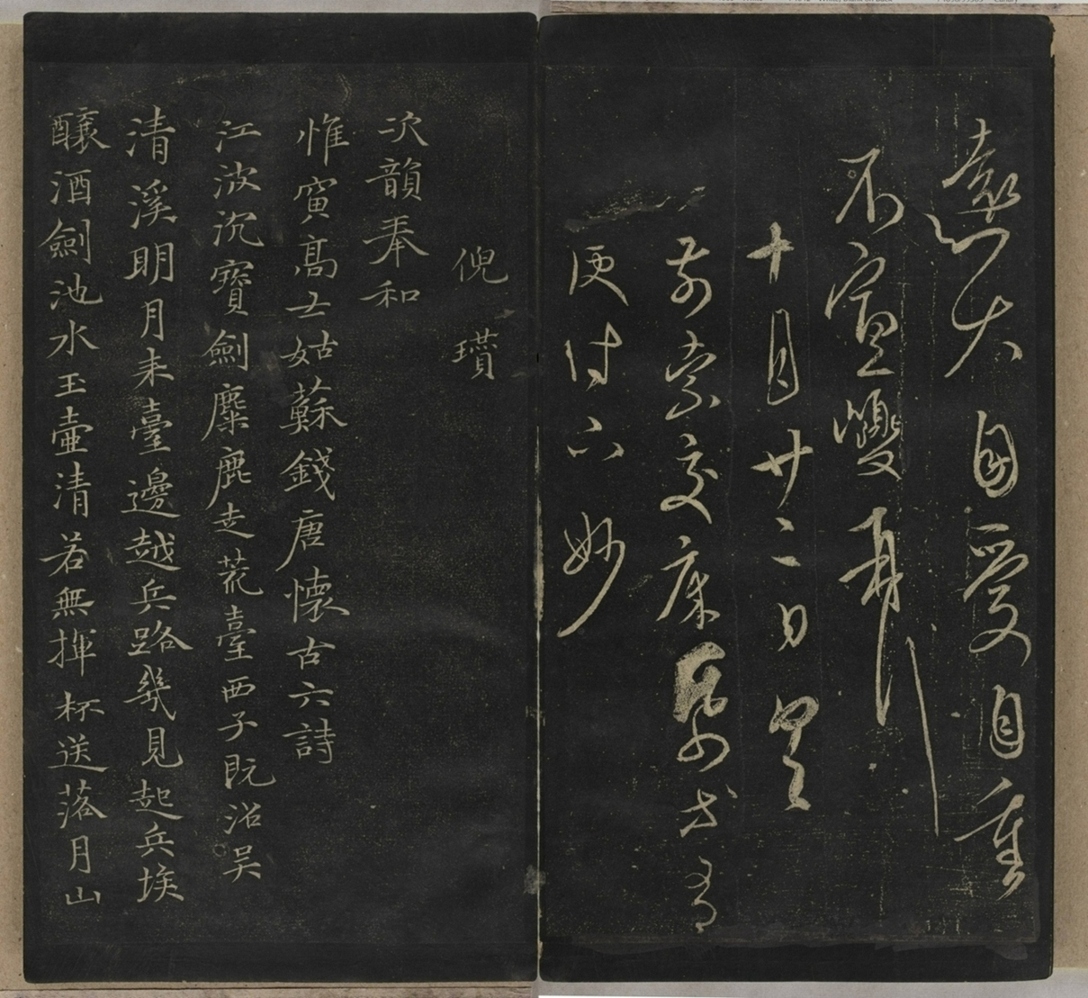 遠大自愛自重
不宣巙再拜
十月廿二日
前索交床
便付下妙
倪瓚
次韻奉和
惟寅高士姑蘇錢唐懷古六詩
江波沉寶劍麋鹿走荒臺西子既沼吳
清溪明月来臺邊越兵路幾見起兵埃
釀酒劍池水玉壺清若無揮杯送落月山